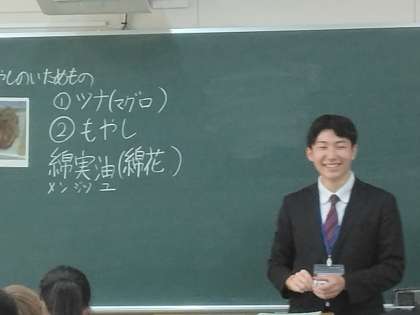 やしのいためもの
①ツナ(マグロ)
②もやし
綿実油(綿花)
メンジツユ